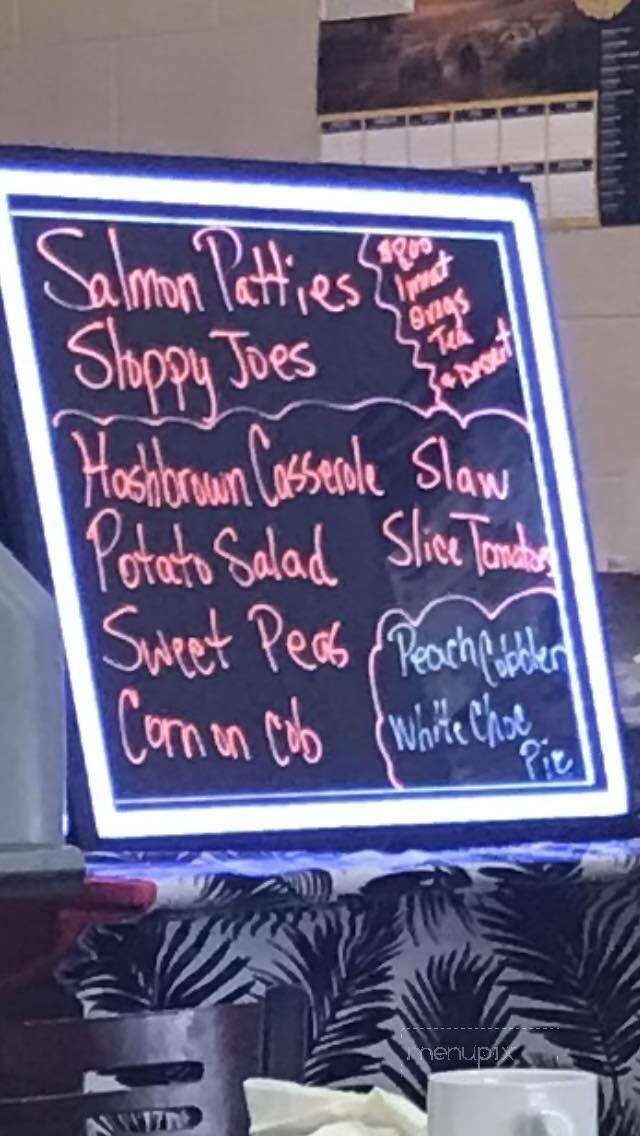 Salmon Patties
Sloppy Joes
$800
1 meat
2 vegs
Tea
& Dessert
Hashbrown Casserole
Potato Salad
Sweet Peas
Corn on Cob
Slaw
Slice Tomatoes
Peach Cobbler
White Choc
Pie
menupix